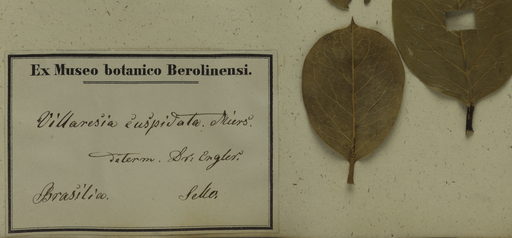 Ex Museo botanico Berolinensi.
Villaresia cuspidata. Miers.
determ. Dr. Engler.
Brasilia. Sello.